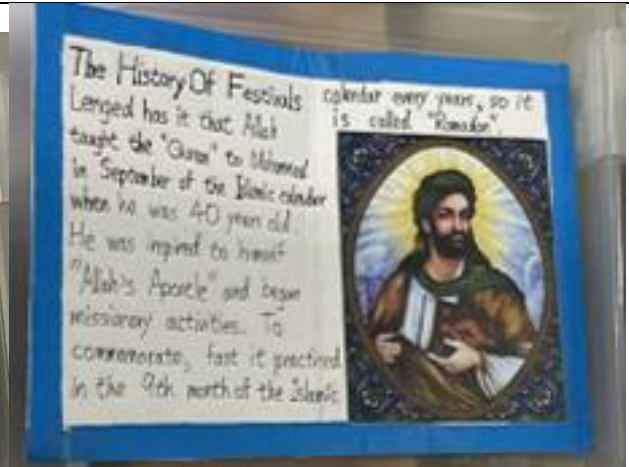 The History Of Festivals
Lenged has it that Allah
taught the "Quran" to Mohammed
in September of the Islamic calendar
when he was 40 years old.
He was inpired to himself
"Allah's Apostle" and began
missionary activities. To
commemorate, fast it practiced
in the 9th month of the Islamic
calendar every years, so it
is called "Ramadan".